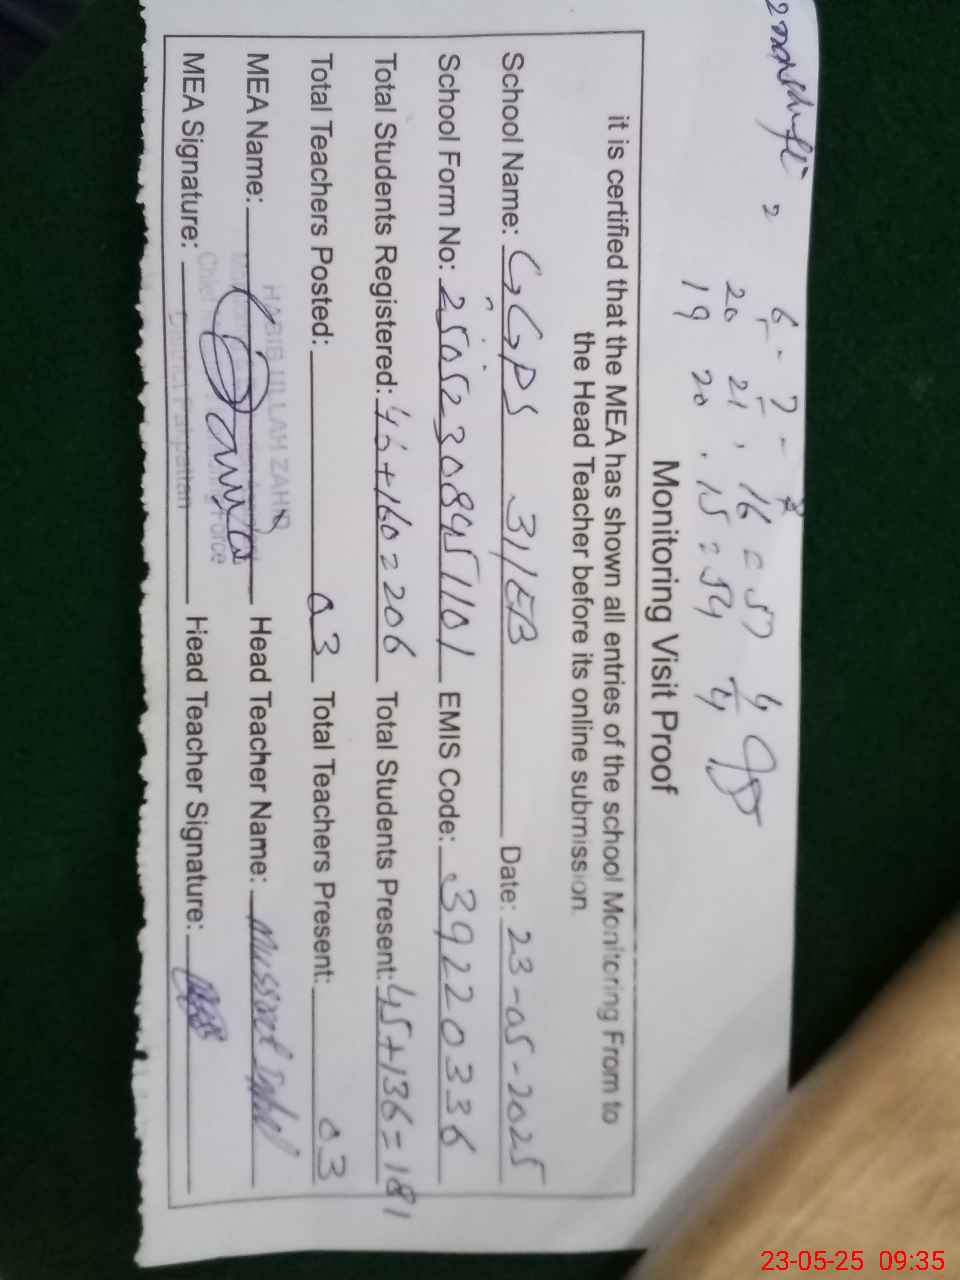 6 - 7 - 8
20 21, 16 = 57 4
19 20. 15 = 54 4
Monitoring Visit Proof
it is certified that the MEA has shown all entries of the school Monitoring From to
the Head Teacher before its online submission.
School Name: GGPS 31/EB Date: 23-05-2025
School Form No: 25052308451101 EMIS Code: 39220336
Total Students Registered: 46+160=206 Total Students Present: 45+136=181
Total Teachers Posted: 03 Total Teachers Present: 03
HABIB ULLAH ZAHID
MEA Name: Head Teacher Name: Mussrat
MEA Signature: Head Teacher Signature:
District Pakpattan
23-05-25 09:35